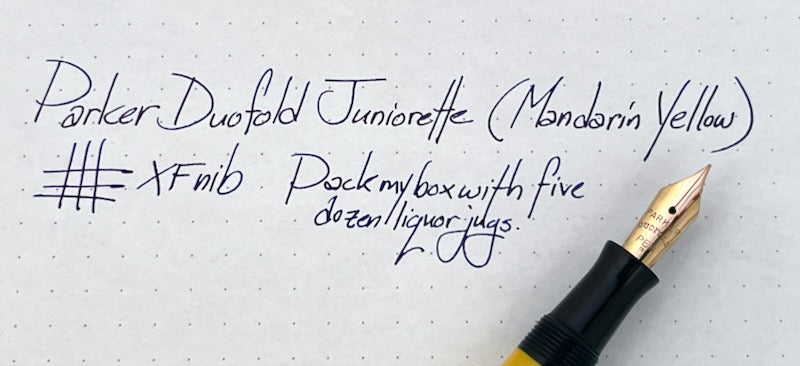 Parker Duofold Juniorette (Mandarin Yellow)
XF nib Pack my box with five
dozen liquor jugs.
PARKER
DUOFOLD
PEN